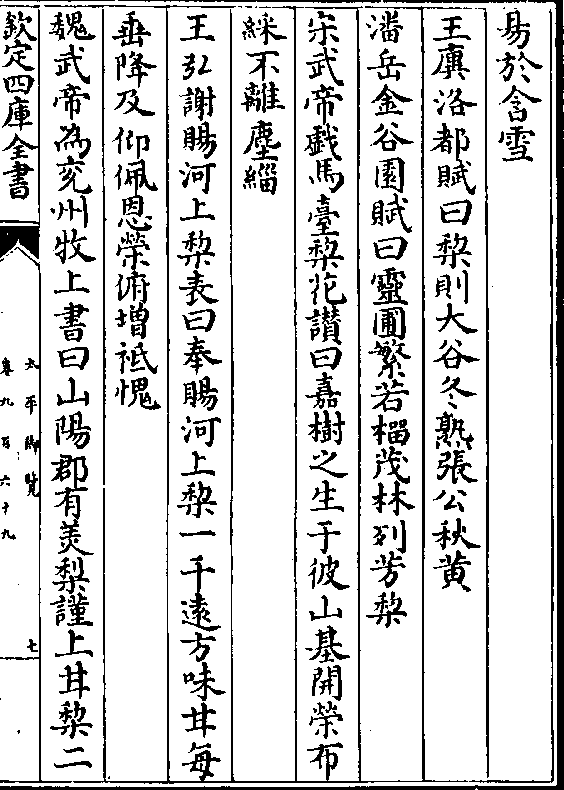 易於含雪
王廙洛都賦曰梨則大谷冬熟張公秋黄
潘岳金谷園賦曰靈囿繁若榴茂林列芳梨
宋武帝戯馬臺梨花讃曰嘉樹之生于彼山基開榮布
綵不離塵緇
王弘謝賜河上梨表曰奉賜河上梨一千逺方味甘每
垂降及仰佩恩榮俯增祗愧
魏武帝為兖州牧上書曰山陽郡有美梨謹上甘梨二
欽定四庫全書
太平御覽
卷九百六十九
七